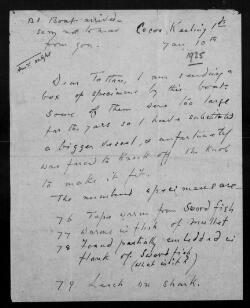 P.S. Boat arrived
sorry not to hear
from you.
Cocos, Keeling Is
Jan 10th
1925
Dear Tottie, I am sending a
box of specimens by this boat
some of them were too large
for the jars so I have substituted
a bigger vessel, & unfortunately
was forced to knock off the knob
to make it fit.
The numbered specimens are
76 Tape worm from Sword fish
77 Worms in flesh of mullet
78 Found partially embedded in
flank of Sword fish
(what is it?)
79 Leech on shark.